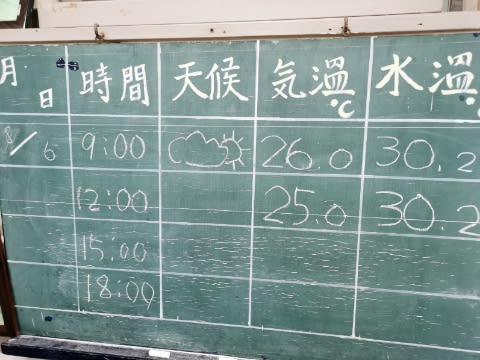 月 日 時間 天候 気温℃ 水温℃
8/6 9:00 26.0 30.2
12:00 25.0 30.2
15:00
18:00